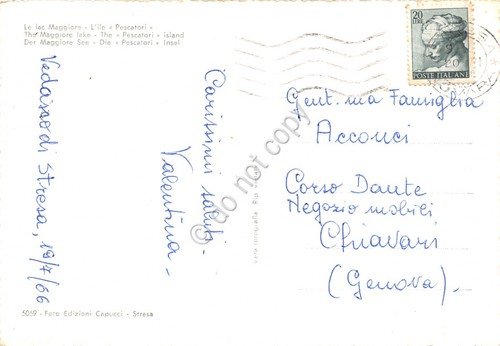 Le lac Maggiore - L'ile « Pescatori »
The Maggiore lake - The « Pescatori » island
Der Maggiore See - Die « Pescatori » Insel
Stresa, 19/7/66
Carissimi saluti -
Valentina -
20
POSTE ITALIANE
Gent.ma Famiglia
Acconci
Corso Dante
Negozio mobili
Chiavari
(Genova).
vera fotografia
5059 - Foto Edizioni Capucci - Stresa
© do not copy